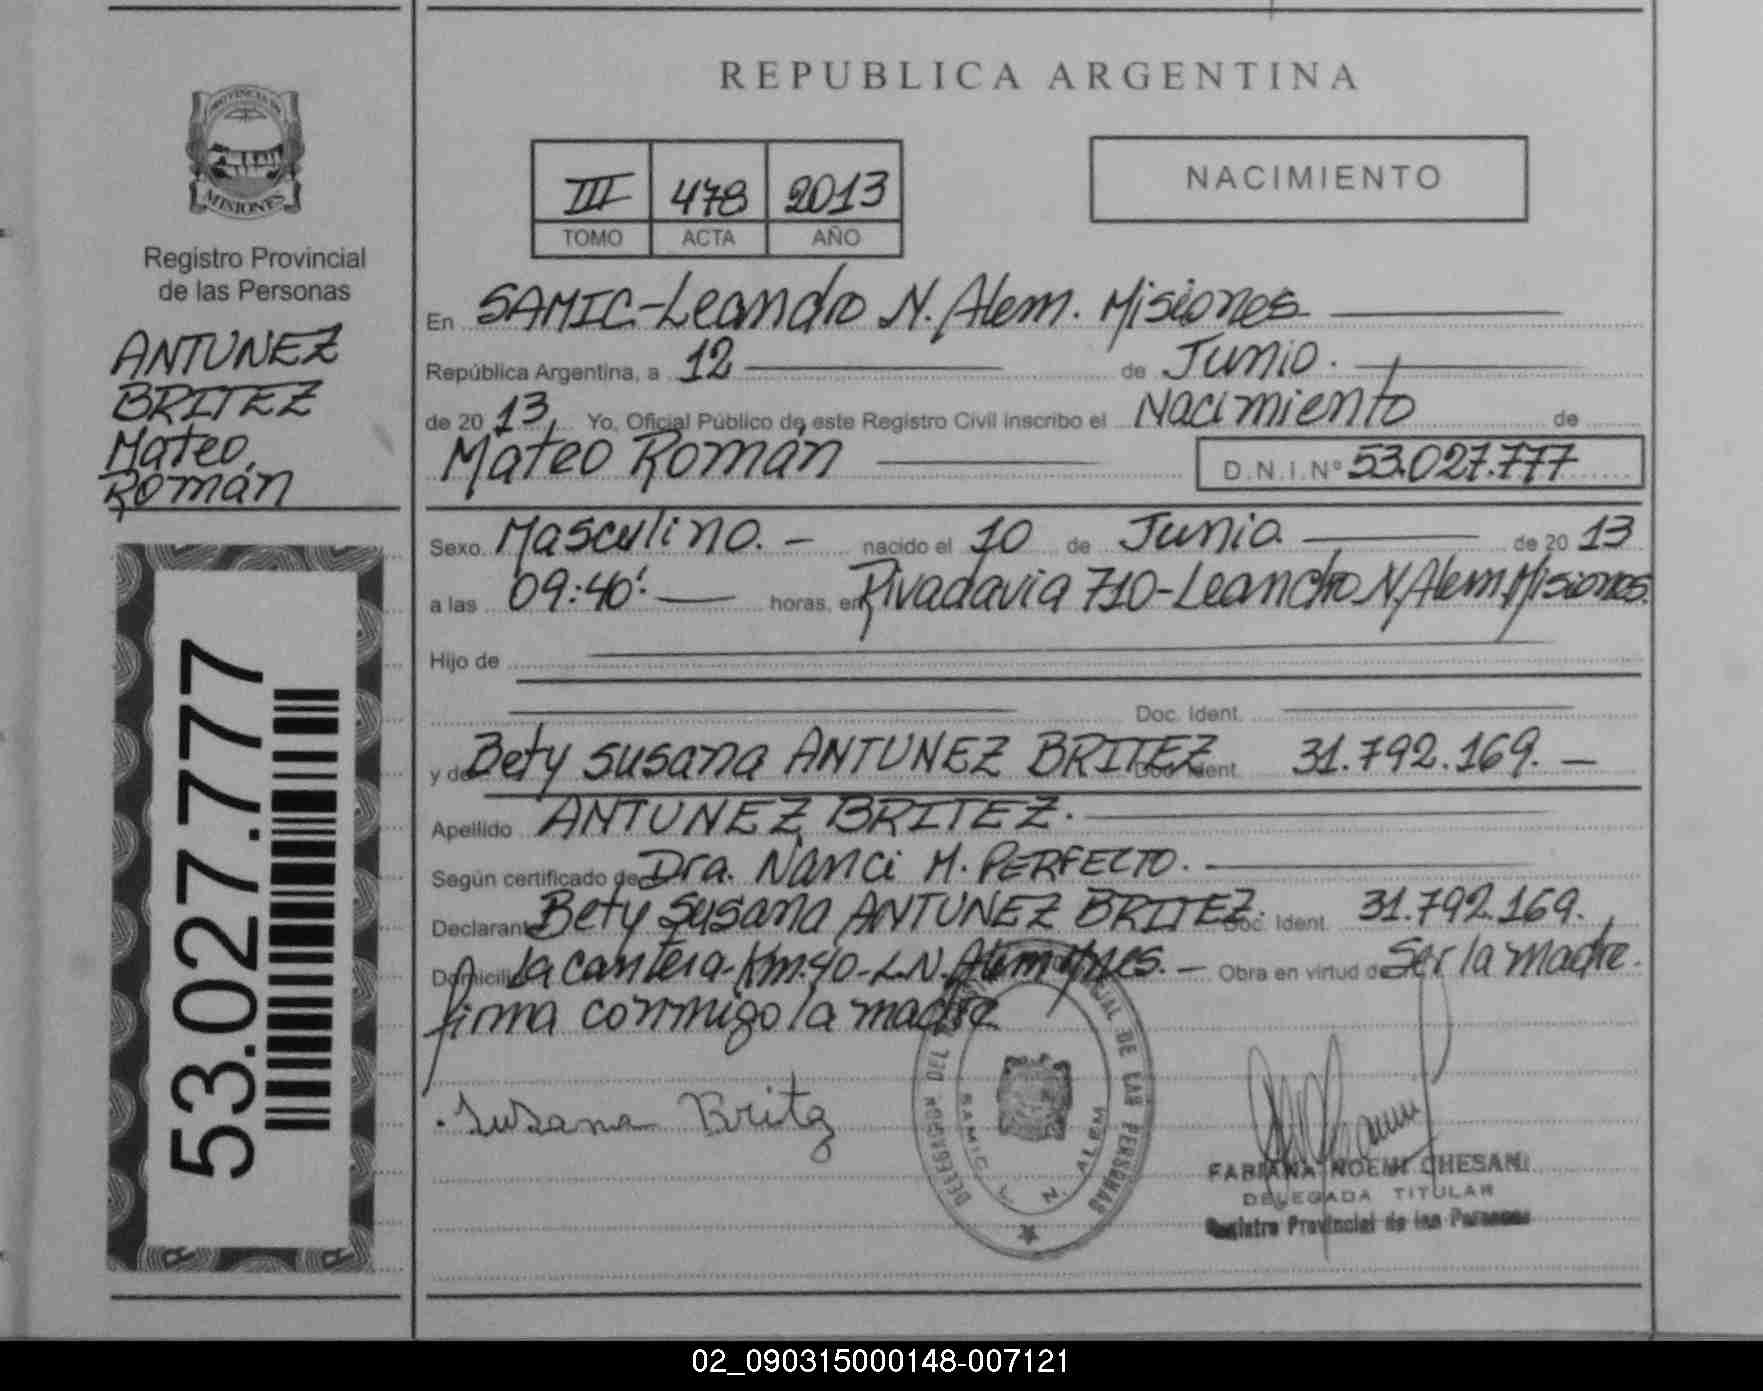 REPUBLICA ARGENTINA
PROVINCIA DE
MISIONES
Registro Provincial
de las Personas
ANTUNEZ
BRITEZ
Mateo
Román
53.027.777
III 478 2013
TOMO ACTA AÑO
NACIMIENTO
En SAMIC-Leandro N. Alem. Misiones
República Argentina, a 12 de Junio.
de 20 13. Yo, Oficial Público de este Registro Civil inscribo el Nacimiento de
Mateo Román D.N.I.Nº 53.027.777
Sexo Masculino. - nacido el 10 de Junio. de 20 13
a las 09:40'. horas, en Rivadavia 710-Leandro N. Alem. Misiones.
Hijo de
Doc. Ident.
y de Bety Susana ANTUNEZ BRITEZ Doc. Ident. 31.792.169. -
Apellido ANTUNEZ BRITEZ.
Según certificado de Dra. Nanci M. PERFECTO.
Declarante Bety Susana ANTUNEZ BRITEZ. Doc. Ident. 31.792.169.
Domicilio la cantera-Km.40-L.N. Alem Mnes. - Obra en virtud de Ser la madre.
firma conmigo la madre
Susana Britez
DEL DE LAS PERSONAS
SAMIC L. N. ALEM
FABIANA NOEMI CHESANI
DELEGADA TITULAR
Registro Provincial de las Personas
02_090315000148-007121